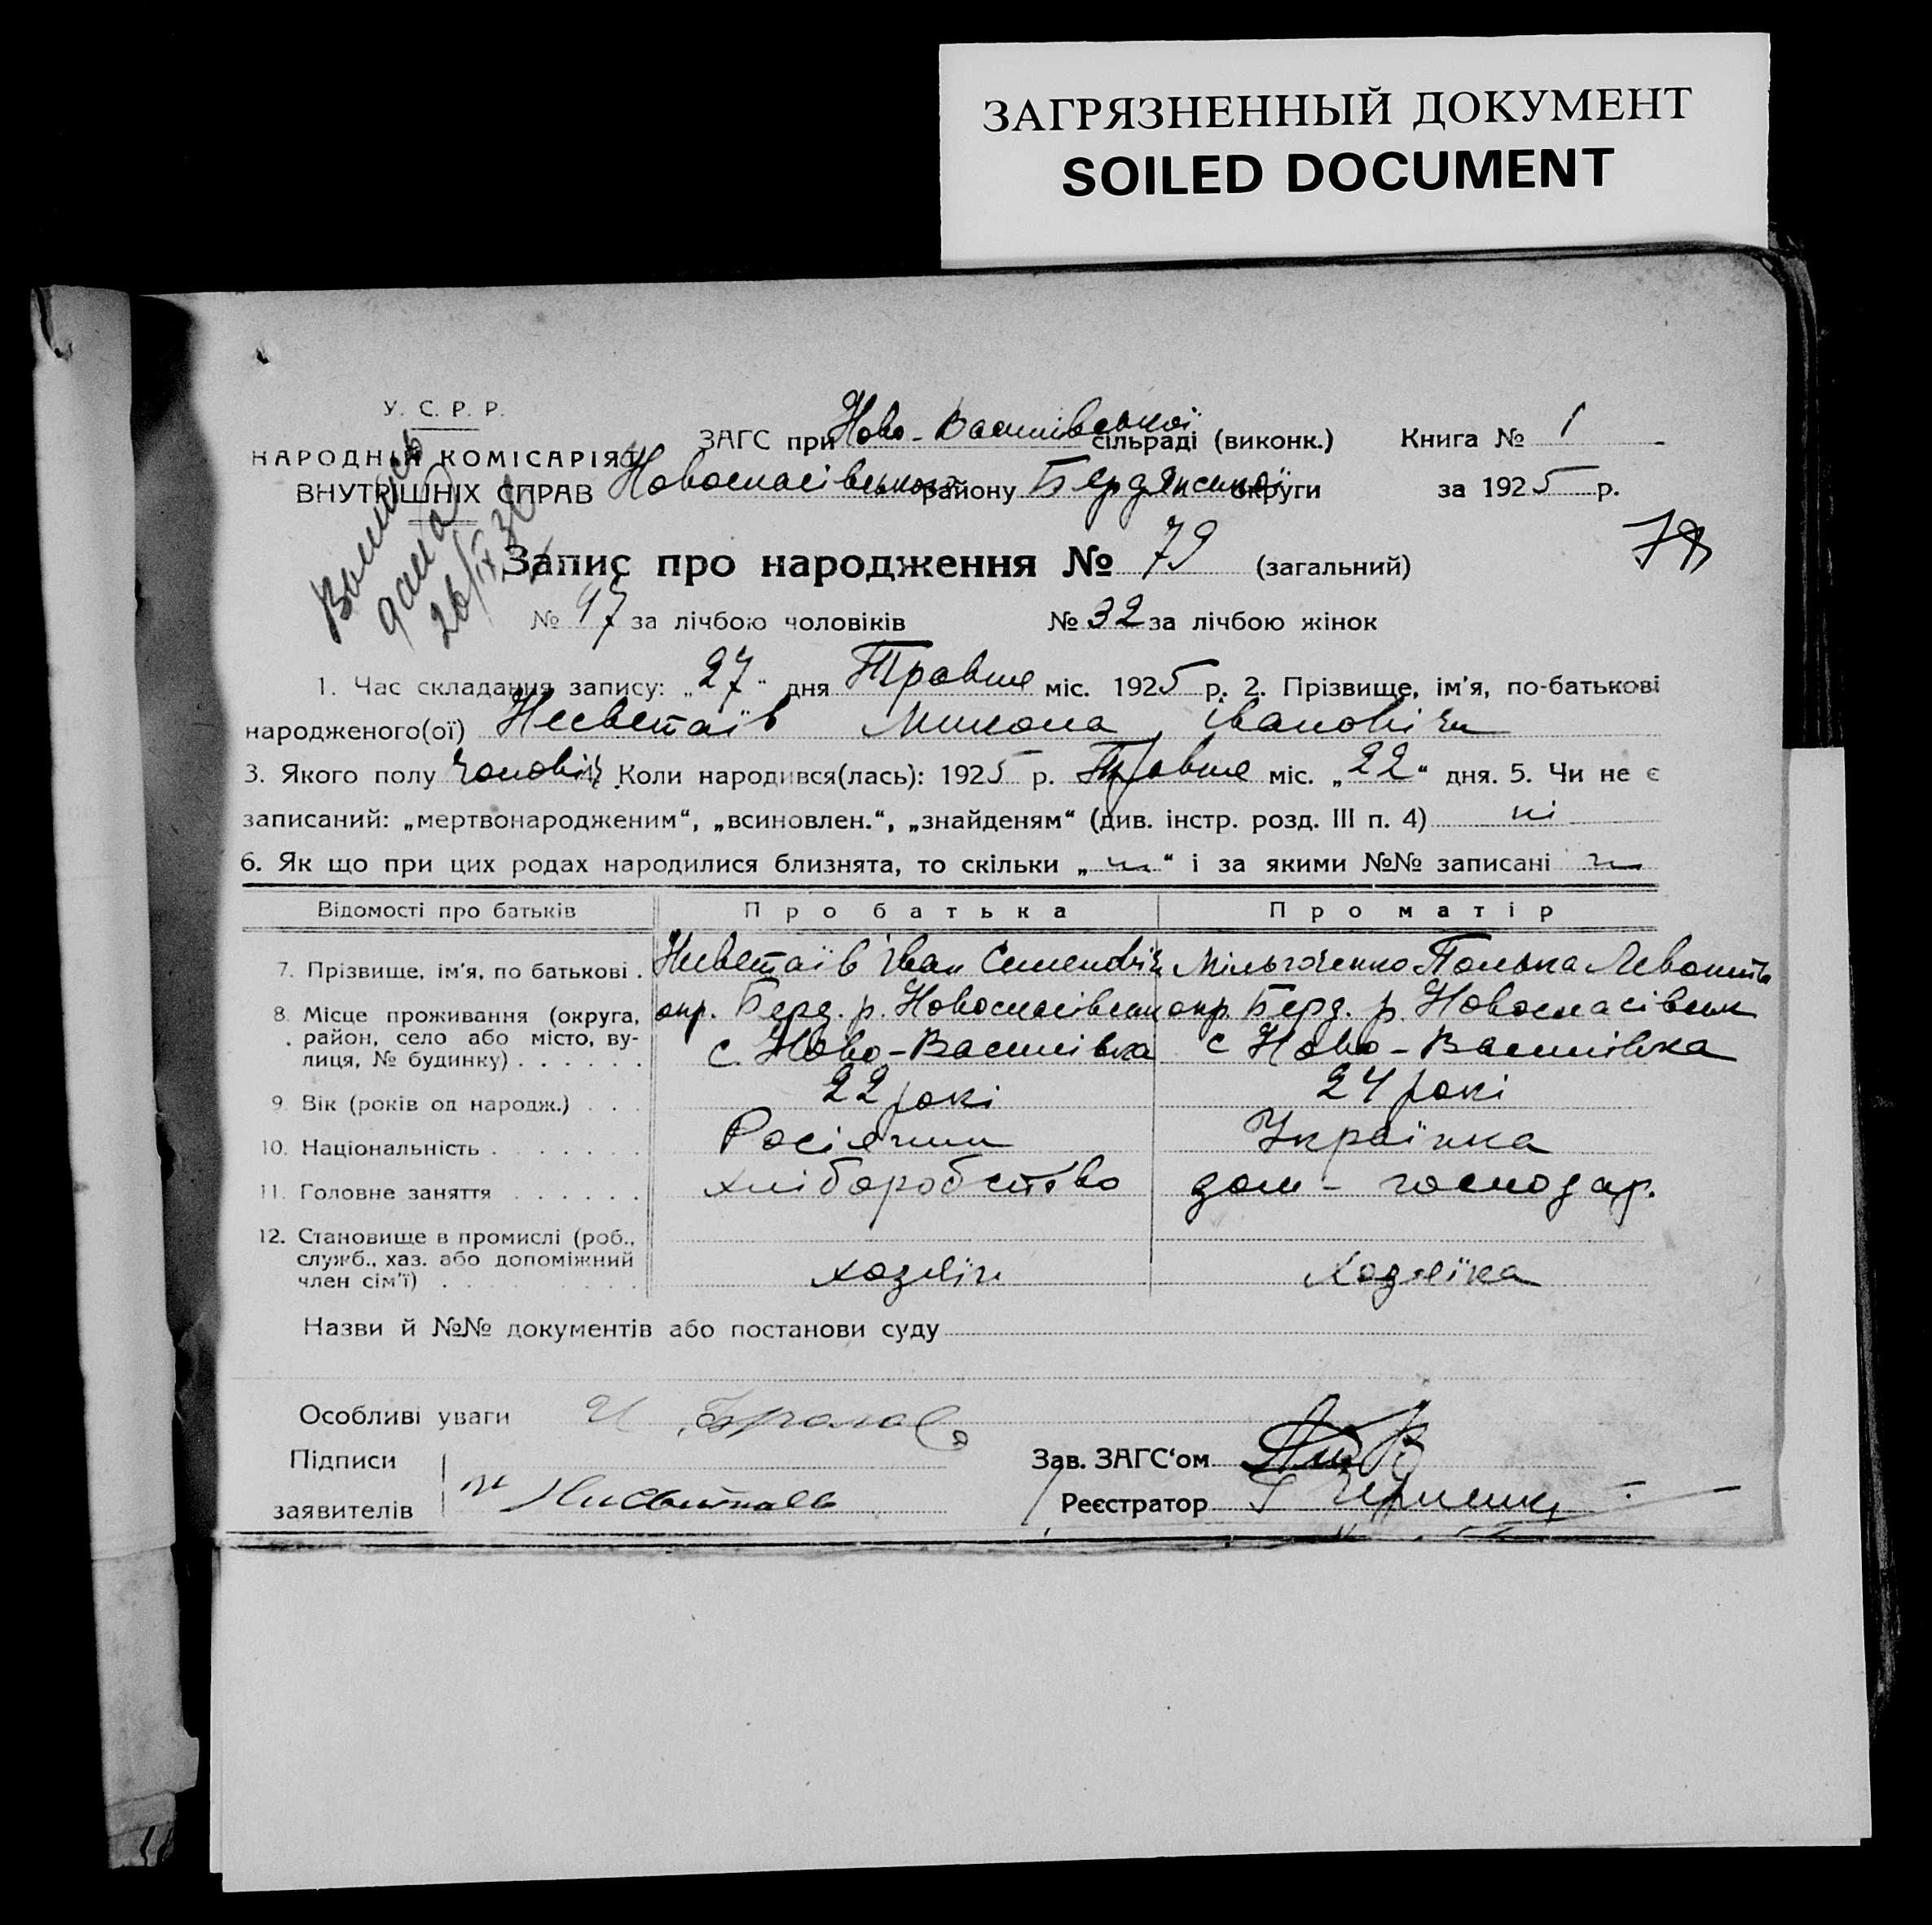 ЗАГРЯЗНЕННЫЙ ДОКУМЕНТ
SOILED DOCUMENT
У. С. Р. Р.
НАРОДНІЙ КОМІСАРІЯТ
ВНУТРІШНІХ СПРАВ
ЗАГС при Ново-Василівської сільраді (виконк.) Книга № 1
Новоспасівського району Бердянської округи за 1925 р.
Выпись
дана
26/IX
Запис про народження № 79 (загальний)
79
№ 47 за лічбою чоловіків № 32 за лічбою жінок
1. Час складання запису: „27“ дня Травня міс. 1925 р. 2. Прізвище, ім'я, по-батькові
народженого(ої) Несветаїв Микола Іванович
3. Якого полу чоловіч 4. Коли народився(лась): 1925 р. Травня міс. „22“ дня. 5. Чи не є
записаний: „мертвонародженим“, „всиновлен.“, „знайденям“ (див. інстр. розд. III п. 4) ні
6. Як що при цих родах народилися близнята, то скільки „ “ і за якими №№ записані
Відомості про батьків Про батька Про матір
7. Прізвище, ім'я, по батькові . Несветаїв Іван Семенович Полька
8. Місце проживання (округа, окр. Берд. р. Новоспасівськ окр. Берд. р. Новоспасівськ
район, село або місто, ву- с. Ново-Василівка с Ново-Василівка
лиця, № будинку) . . . . . .
9. Вік (років од народж.) . . . 22 рокі 24 рокі
10. Національність . . . . . . . Росіянин Українка
11. Головне заняття . . . . . . хліборобство дом-господар.
12. Становище в промислі (роб.,
служб., хаз. або допоміжний
член сім'ї) . . . . . . . . . . хозяїн хозяїка
Назви й №№ документів або постанови суду
Особливі уваги
Підписи
заявителів
Зав. ЗАГС'ом
Реєстратор